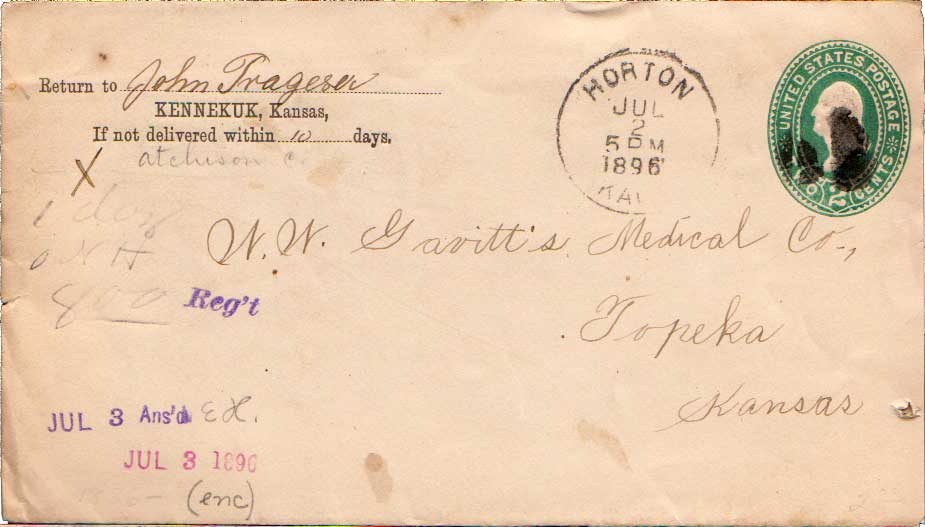 Return to John Trageser
KENNEKUK, Kansas,
If not delivered within 10 days.
atchison c.
X
1 doz
HORTON
JUL
2
5 PM
1896
KAN
UNITED STATES POSTAGE
TWO 2 CENTS
W. W. Gavitt's Medical Co.,
Topeka
Kansas
Reg't
JUL 3 Ans'd E H.
JUL 3 1896
(enc)